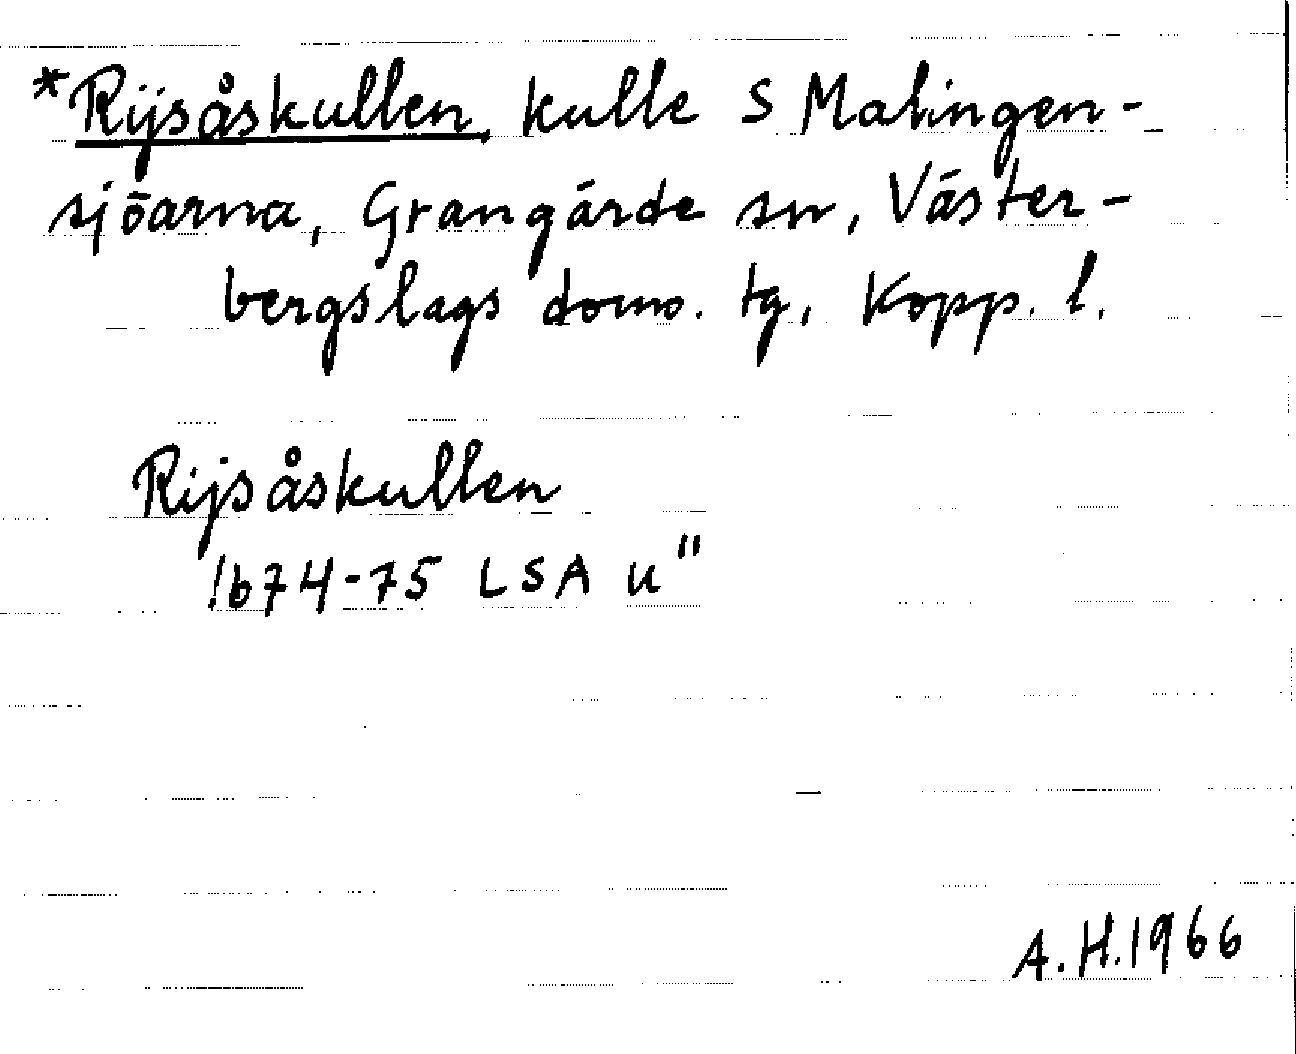 *Rijsåskullen, kulle S Malingen-
sjöarna, Grangärde sn, Väster-
bergslags doms. tg, Kopp. l.
Rijsåskullen
1674-75 LSA U"
A.H.1966